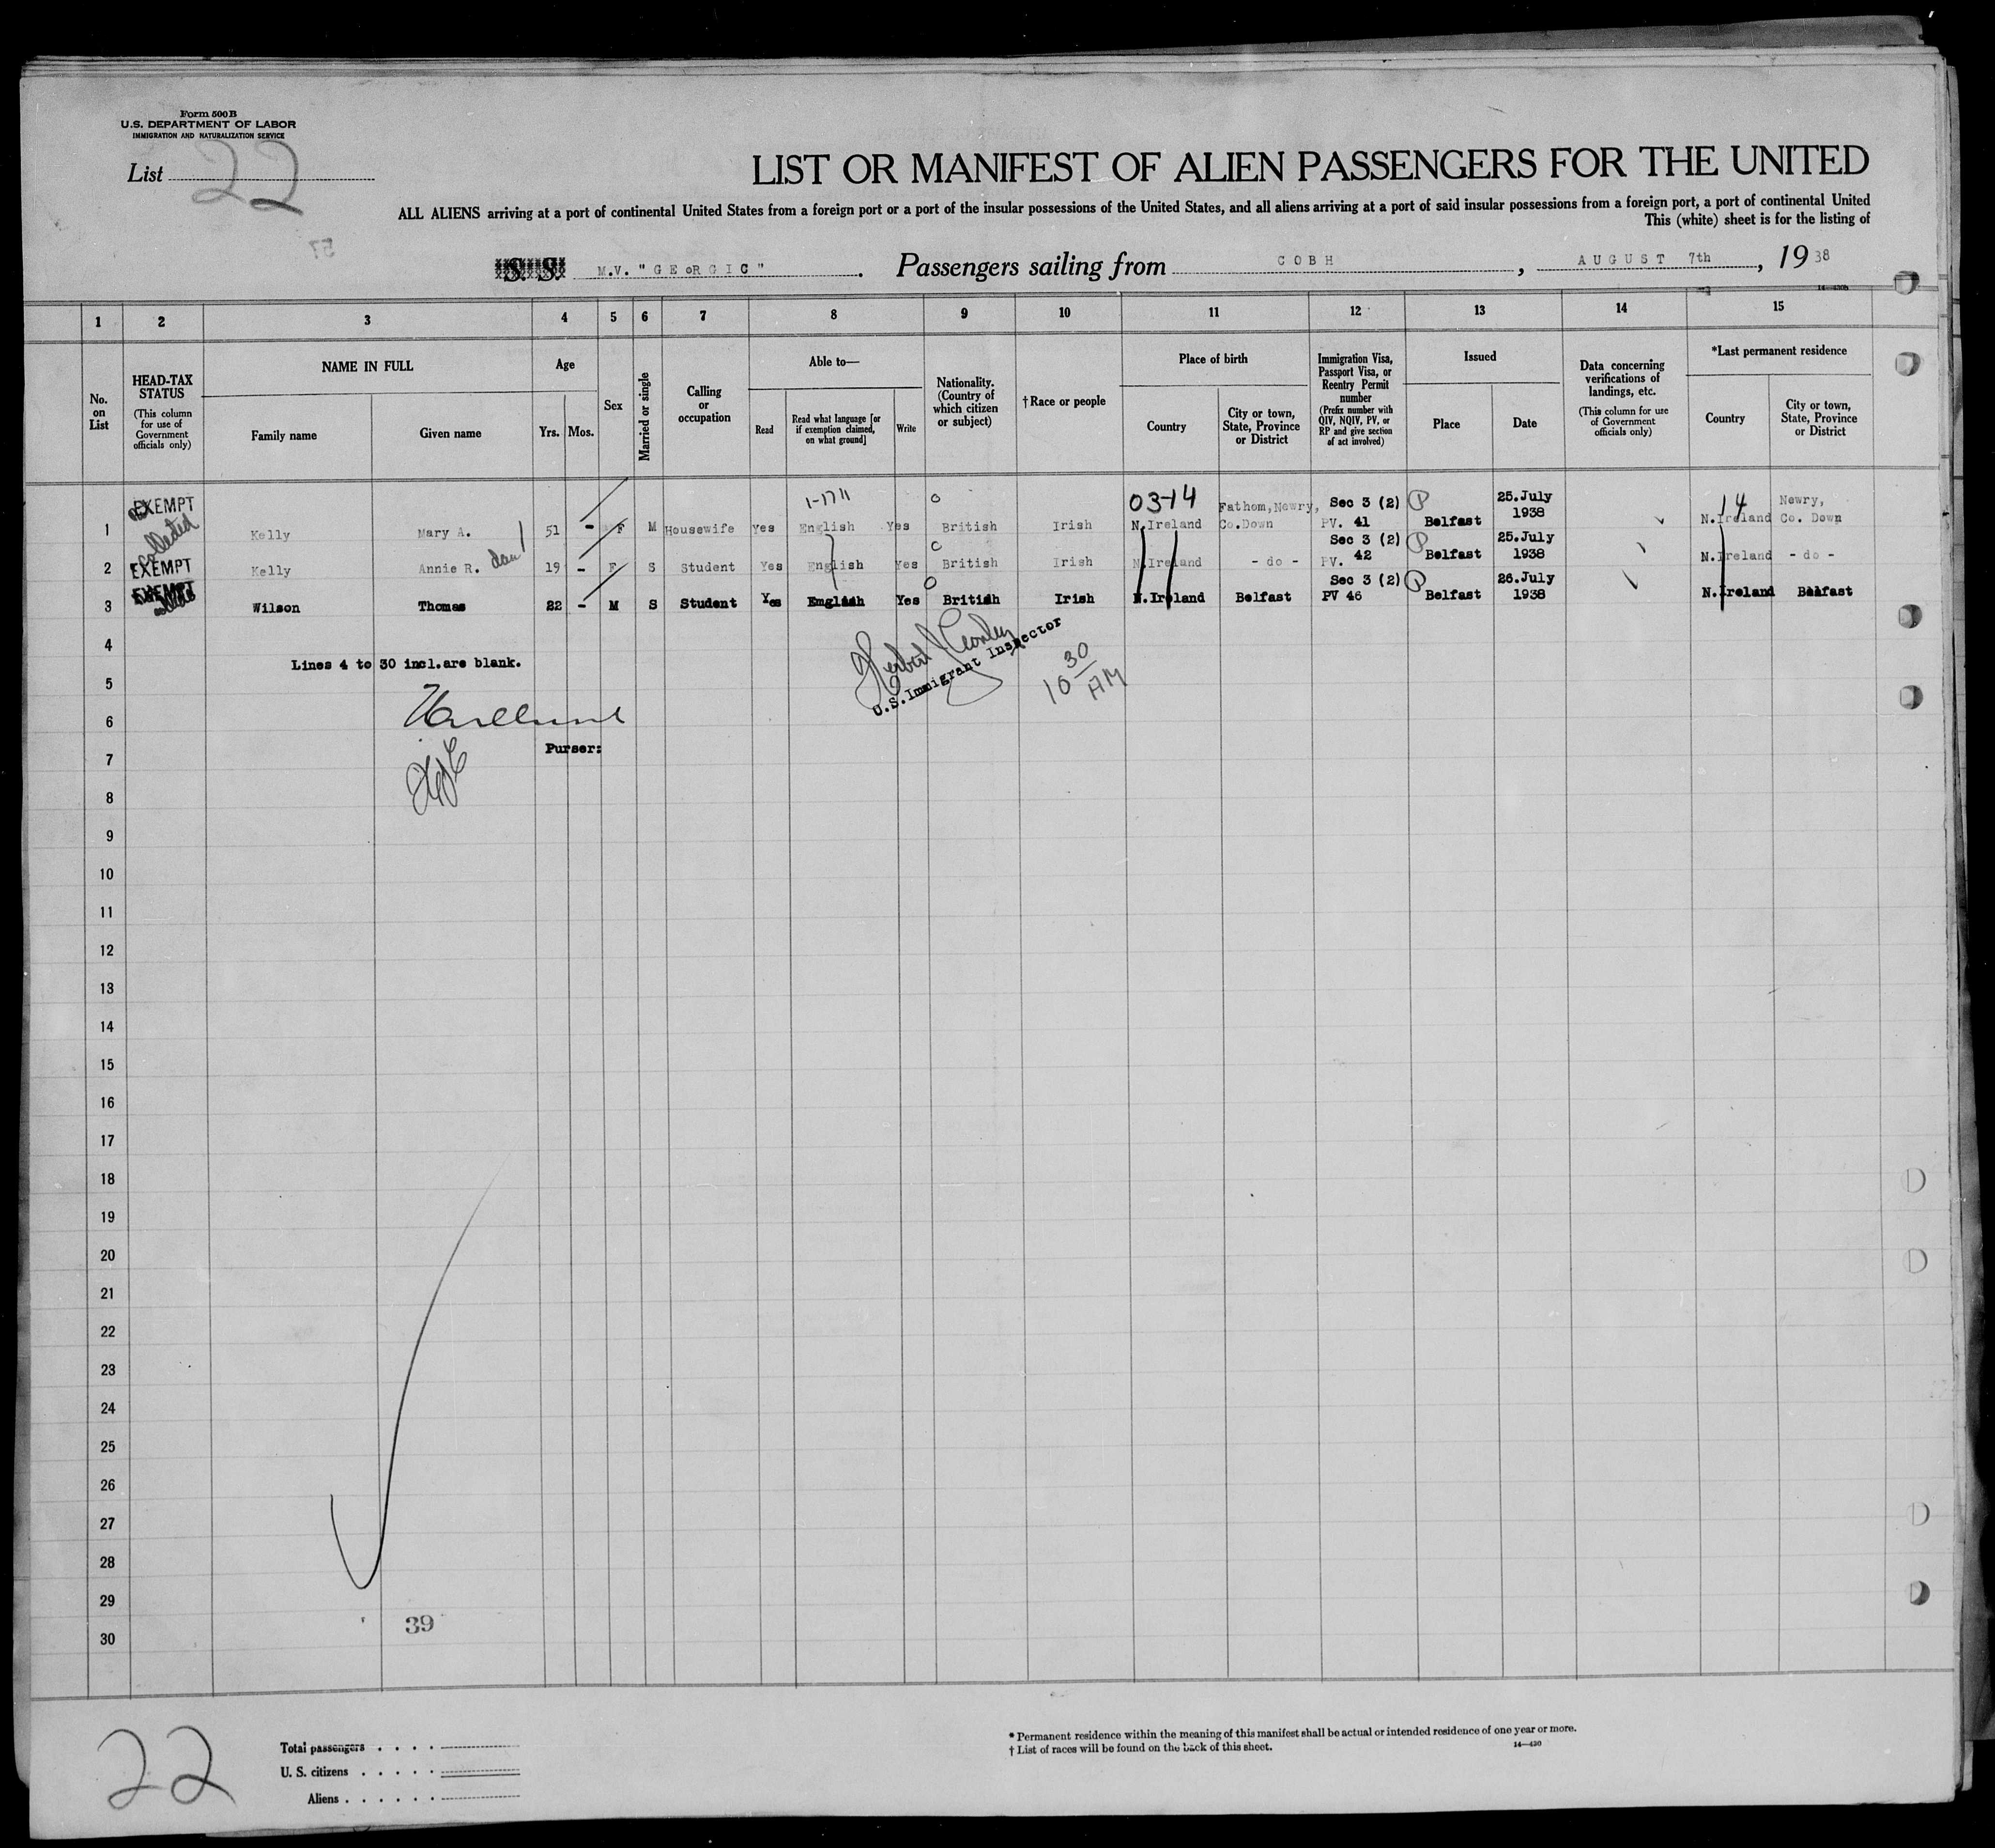 Form 500 B
U.S. DEPARTMENT OF LABOR
IMMIGRATION AND NATURALIZATION SERVICE
List 22
LIST OR MANIFEST OF ALIEN PASSENGERS FOR THE UNITED
ALL ALIENS arriving at a port of continental United States from a foreign port or a port of the insular possessions of the United States, and all aliens arriving at a port of said insular possessions from a foreign port, a port of continental United
This (white) sheet is for the listing of
57
S. S. M.V. "GEoRGIC". Passengers sailing from COBH, AUGUST 7th, 1938
1 2 3 4 5 6 7 8 9 10 11 12 13 14 15
No. on List
HEAD-TAX STATUS (This column for use of Government officials only)
NAME IN FULL
Family name
Given name
Age
Yrs.
Mos.
Sex
Married or single
Calling or occupation
Able to—
Read
Read what language [or if exemption claimed, on what ground]
Write
Nationality. (Country of which citizen or subject)
†Race or people
Place of birth
Country
City or town, State, Province or District
Immigration Visa, Passport Visa, or Reentry Permit number (Prefix number with QIV, NQIV, PV, or RP and give section of act involved)
Issued
Place
Date
Data concerning verifications of landings, etc. (This column for use of Government officials only)
*Last permanent residence
Country
City or town, State, Province or District
EXEMPT collected 1-1711 03-14 14
1 Kelly Mary A. 51 - F M Housewife Yes English Yes British Irish N.Ireland Fathom,Newry, Co.Down Sec 3 (2) PV. 41 P Belfast 25.July 1938 N.Ireland Newry, Co. Down
2 EXEMPT Kelly Annie R. dau 19 - F S Student Yes English Yes British Irish N.Ireland - do - Sec 3 (2) PV. 42 P Belfast 25.July 1938 N.Ireland - do -
3 EXEMPT Wilson Thomas 22 - M S Student Yes English Yes British Irish N.Ireland Belfast Sec 3 (2) PV 46 P Belfast 26.July 1938 N.Ireland Belfast
4
Lines 4 to 30 incl.are blank.
U.S.Immigrant Inspector
10 30 AM
5
6
7 Purser:
8
9
10
11
12
13
14
15
16
17
18
19
20
21
22
23
24
25
26
27
28
29
39
30
22
Total passengers
U. S. citizens
Aliens
* Permanent residence within the meaning of this manifest shall be actual or intended residence of one year or more.
† List of races will be found on the back of this sheet. 14—430